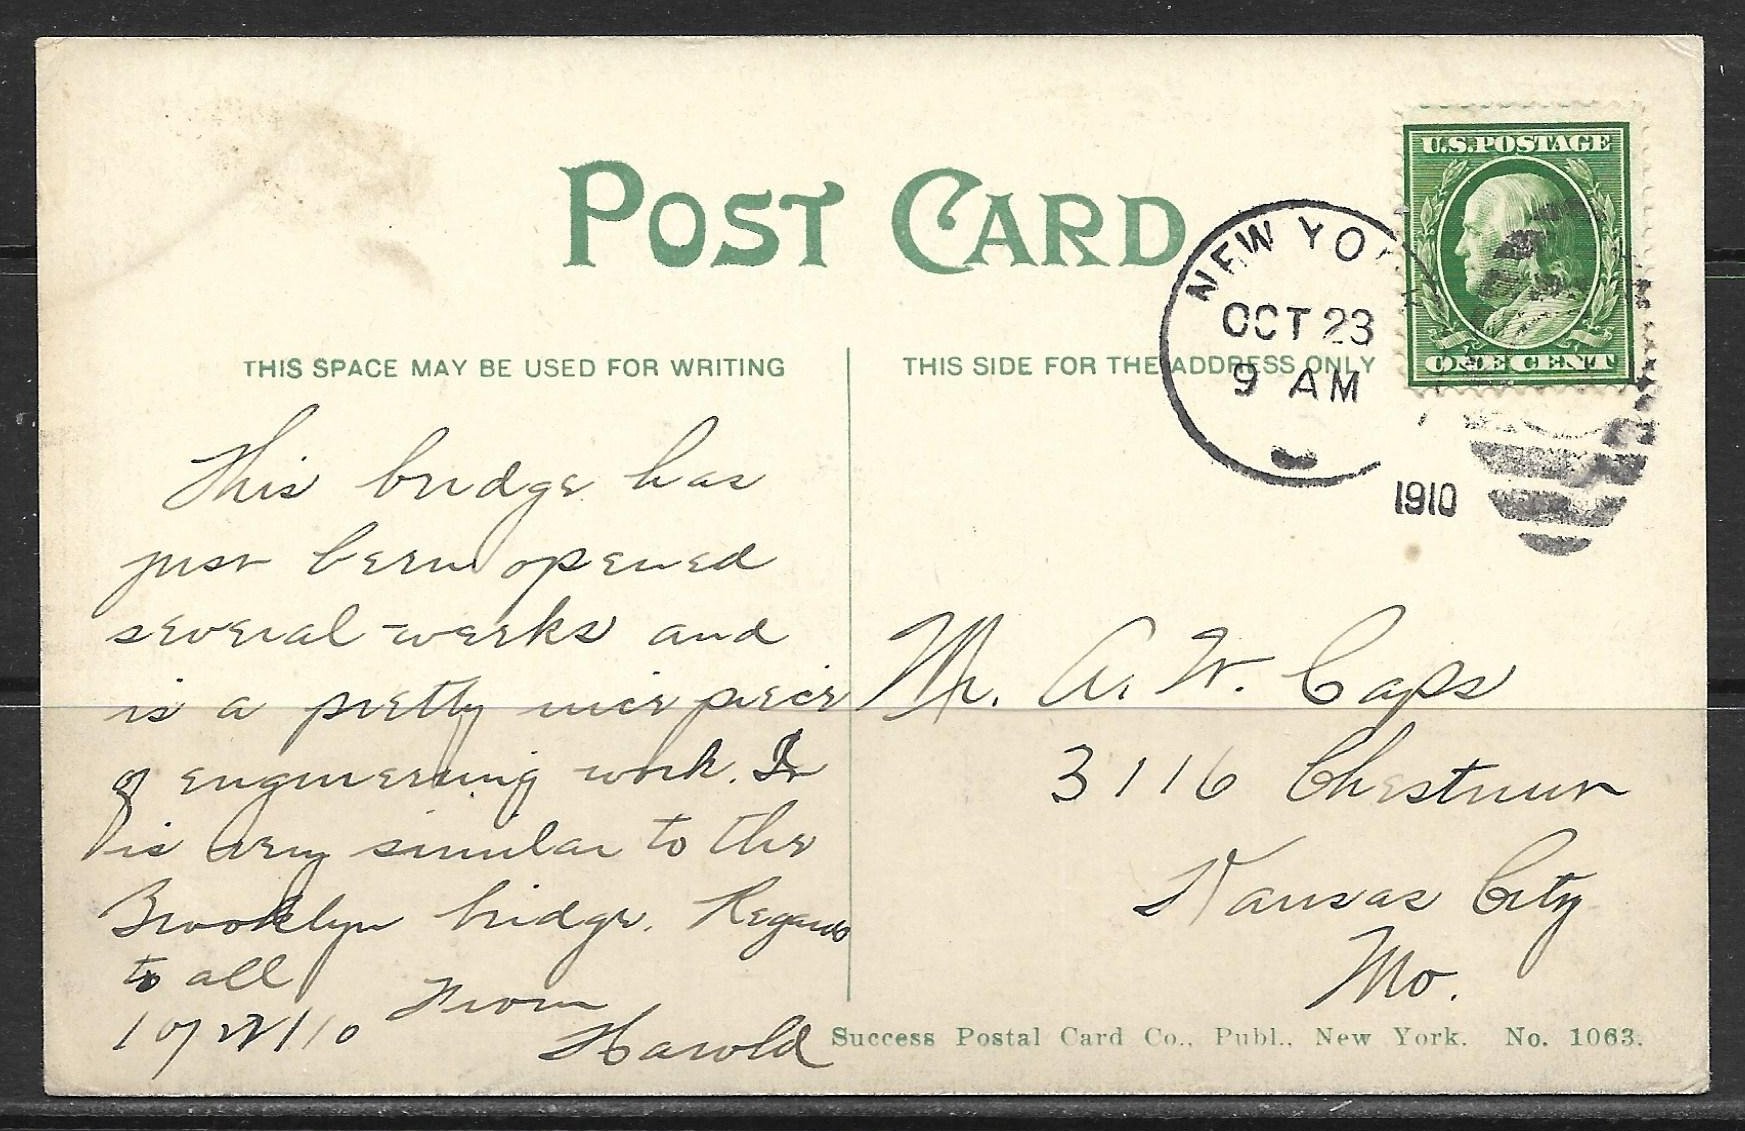 POST CARD
U.S. POSTAGE
ONE CENT
NEW YORK
OCT 23
9 AM
1910
THIS SPACE MAY BE USED FOR WRITING
THIS SIDE FOR THE ADDRESS ONLY
This bridge has
just been opened
several weeks and
is a pretty nice piece
of engineering work. It
is very similar to the
Brooklyn bridge. Regards
to all
From
10/22/10
Harold
Mr. A. W. Caps
3116 Chestnut
Kansas City
Mo.
Success Postal Card Co., Publ., New York. No. 1063.